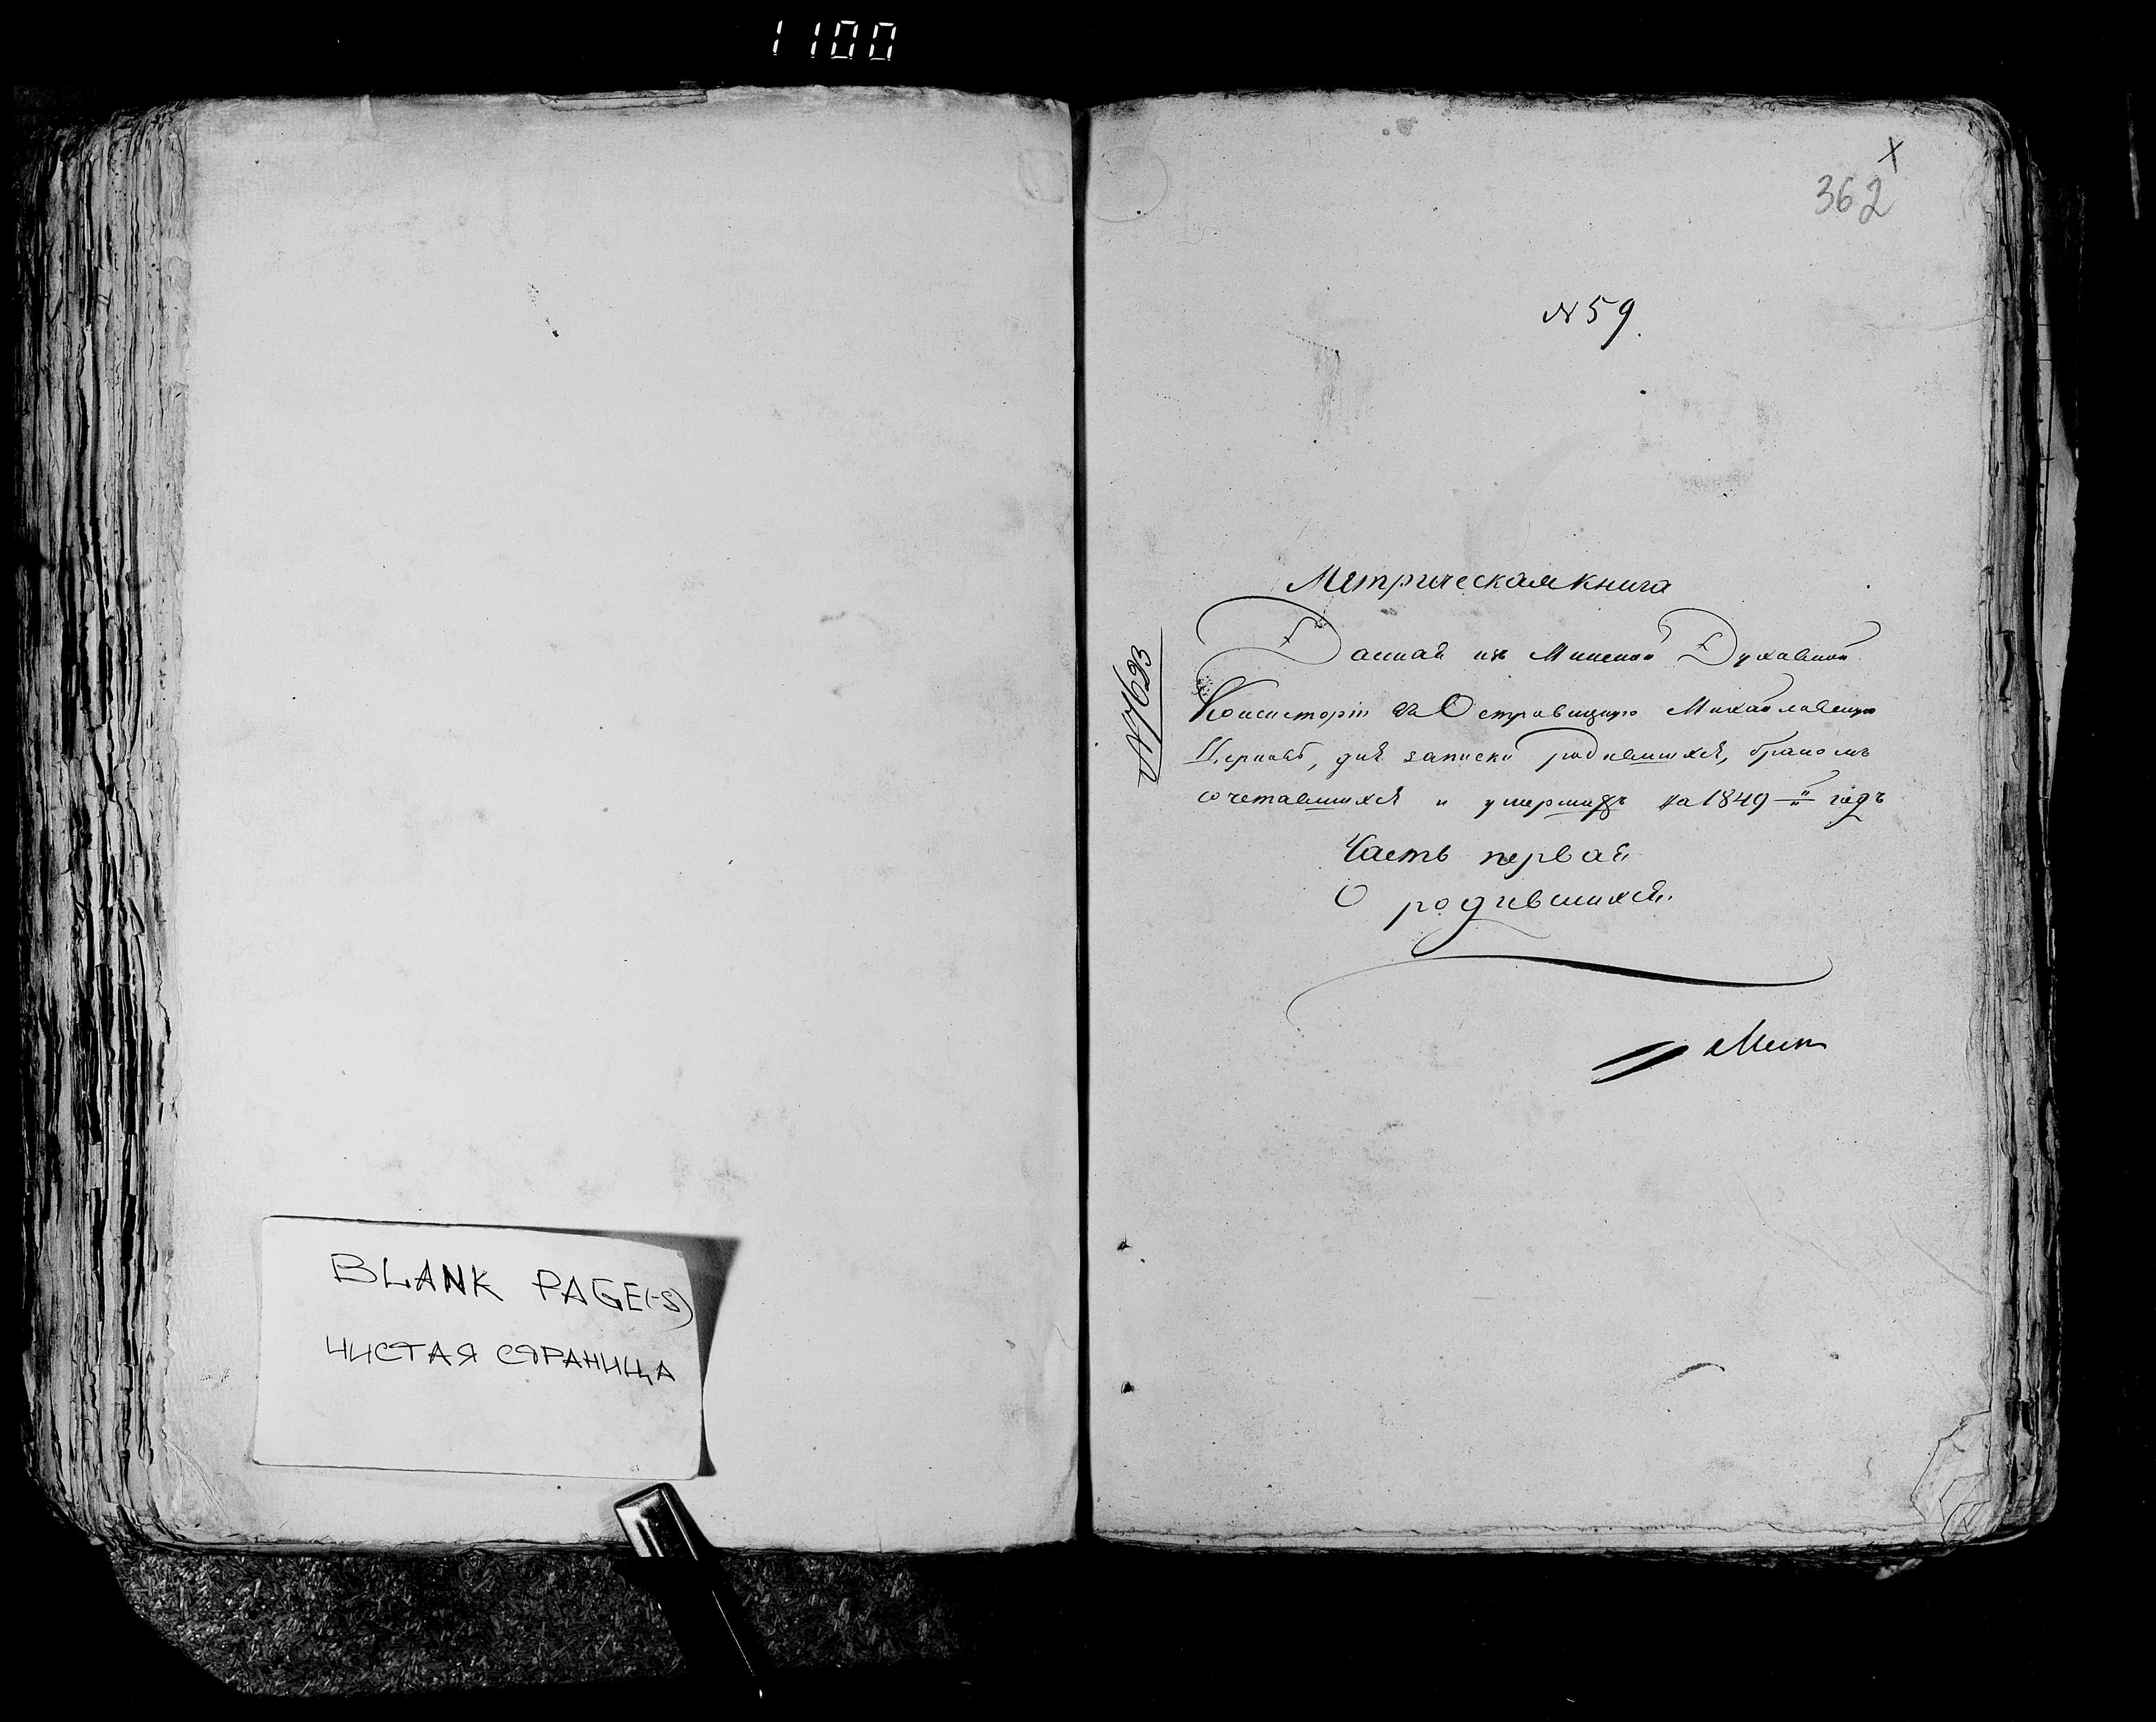 1100
BLANK PAGE(-S)
ЧИСТАЯ СТРАНИЦА
X
362
№ 59.
Метрическая книга
Данная изъ Минской Духовной
Консисторіи въ Островицкую Михайловскую
Церковь, для записки родившихся, бракомъ
сочетавшихся и умершихъ на 1849 годъ
Часть первая
О родившихся.
№ 7623